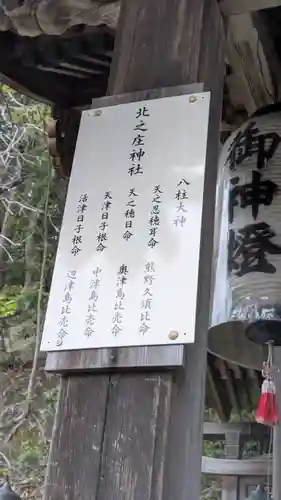 北之庄神社
八柱大神
天之忍穂耳命　熊野久須比命
天之穂日命　奥津島比売命
天津日子根命　中津島比売命
活津日子根命　辺津島比売命
御神燈